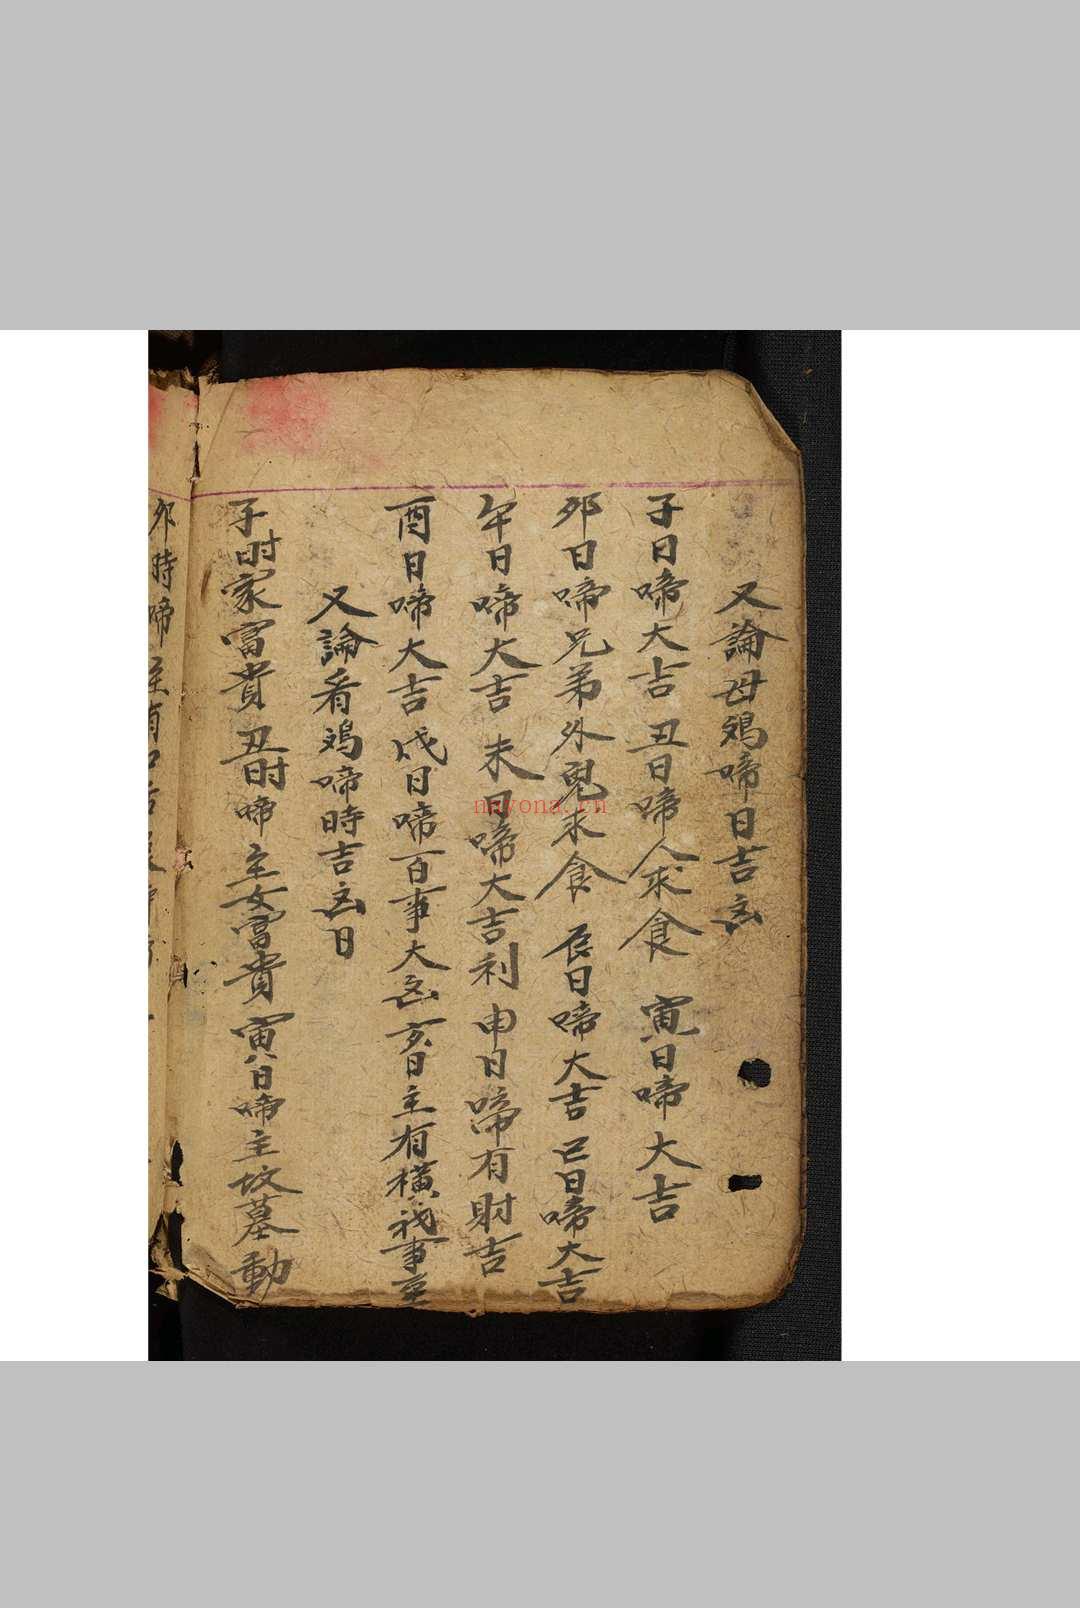 又論母鸡啼日吉凶
子日啼大吉 丑日啼人求食 寅日啼大吉
卯日啼兄弟外鬼求食 辰日啼大吉 巳日啼大吉
午日啼大吉 未日啼大吉利 申日啼有財吉
酉日啼大吉 戌日啼百事大凶 亥日主有橫祸事至
又論看鸡啼時吉凶日
子时家富貴 丑时啼主女富貴 寅日啼主坟墓動
卯時啼主有口舌
nayona.cn